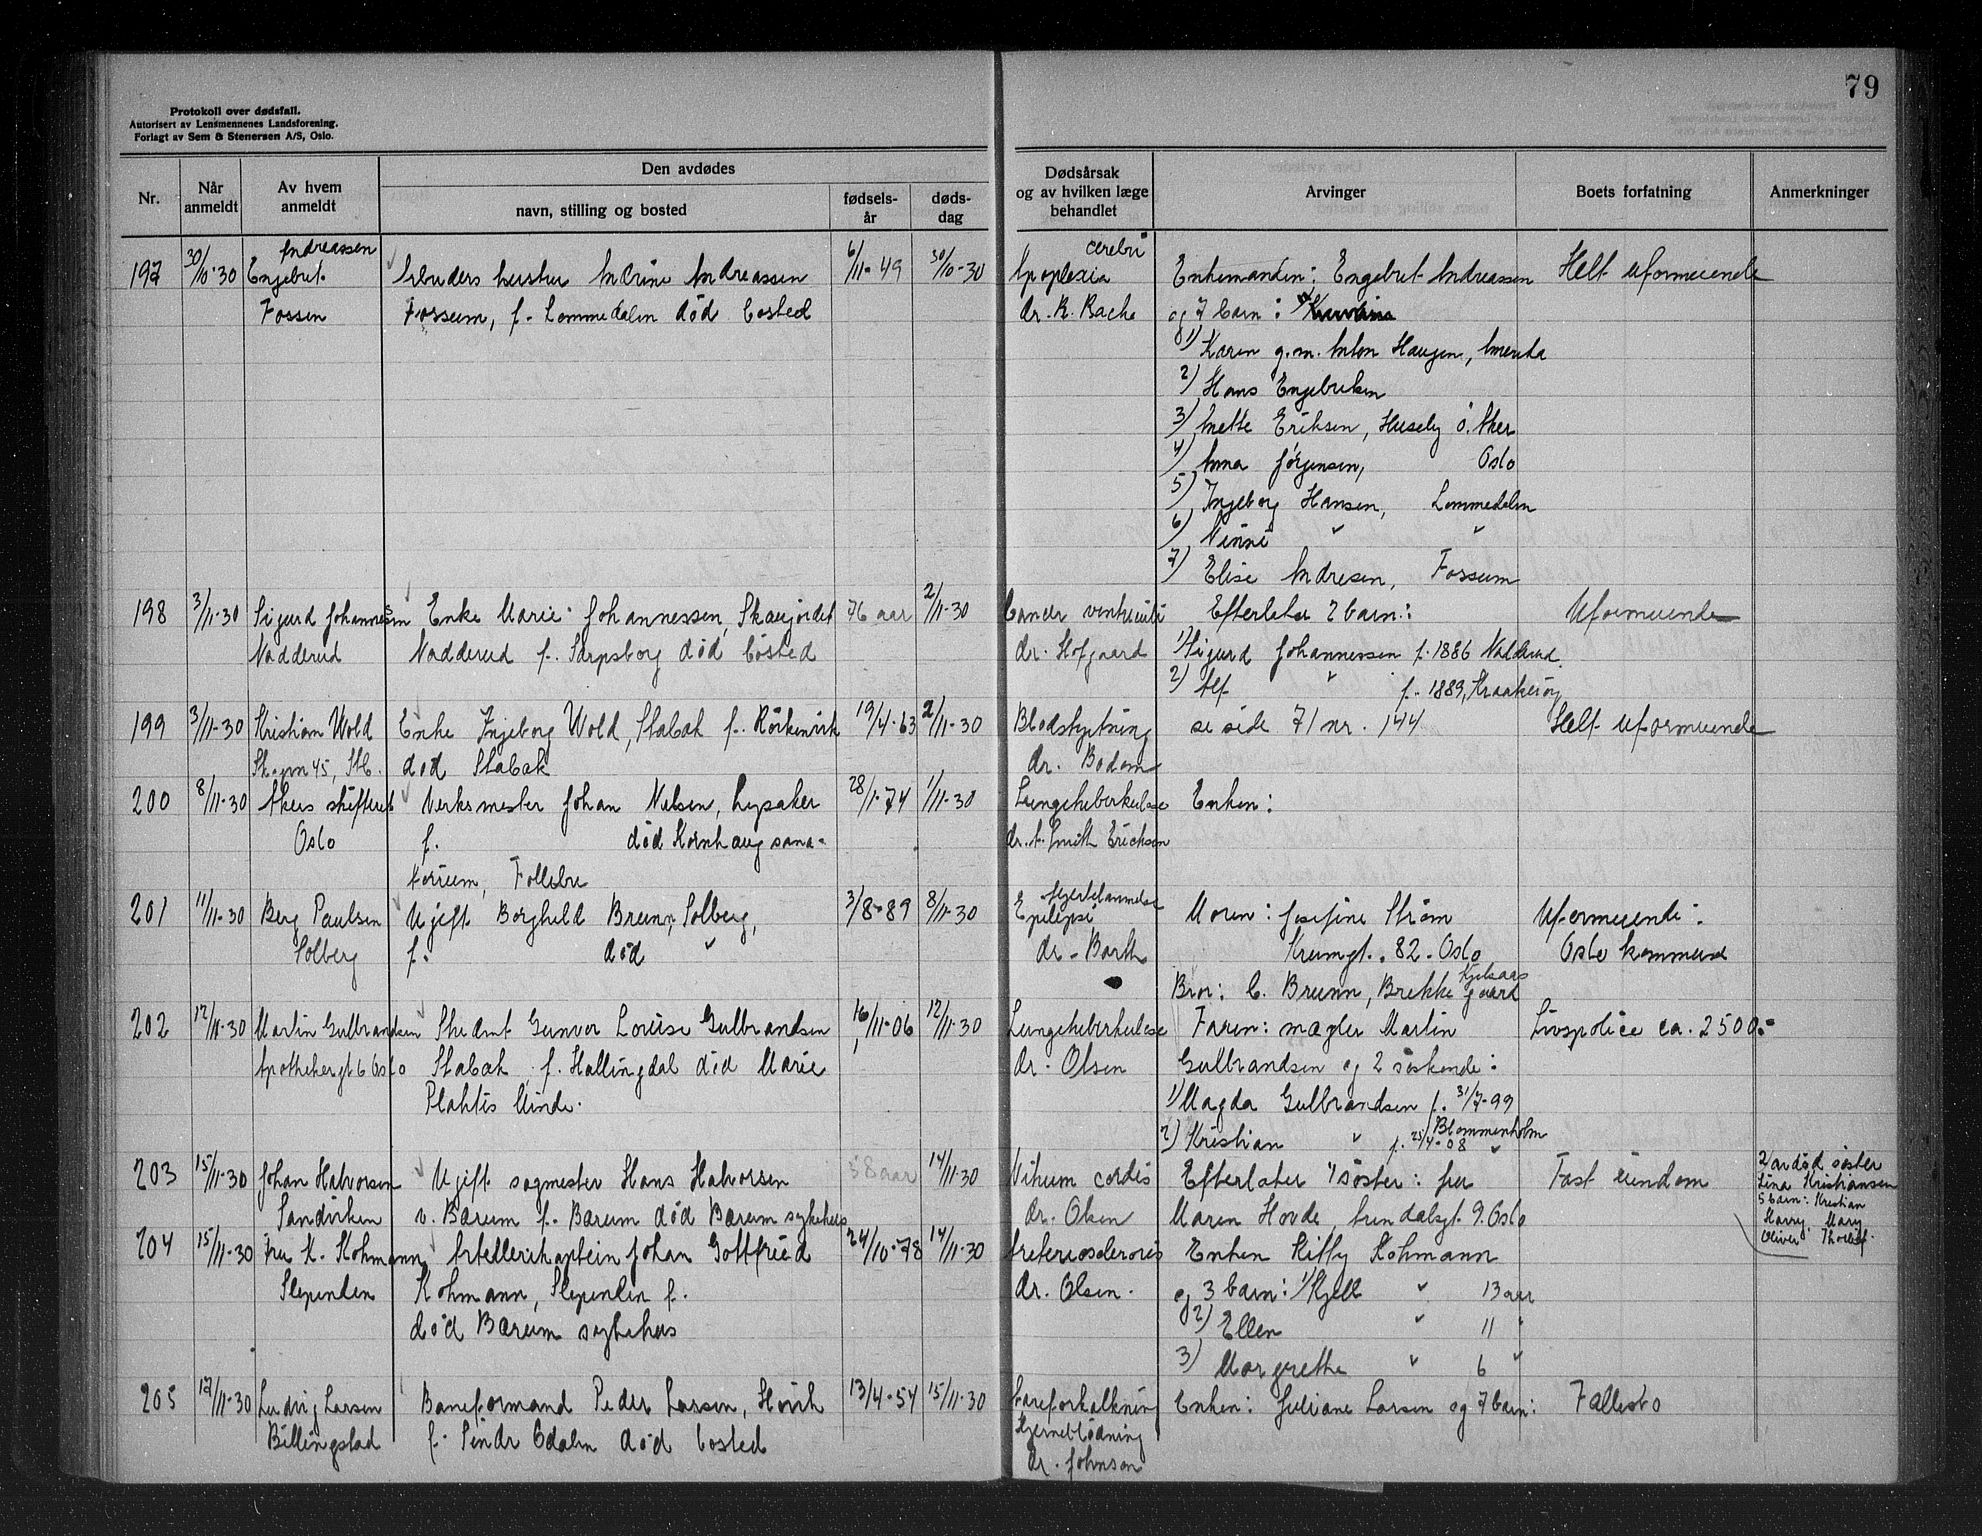 79
Protokoll over dødsfall.
Autorisert av Lensmennenes Landsforening.
Forlagt av Sem & Stenersen A/S, Oslo.
Nr.
Når anmeldt
Av hvem anmeldt
Den avdødes
navn, stilling og bosted
fødsels-år
døds-dag
Dødsårsak og av hvilken læge behandlet
Arvinger
Boets forfatning
Anmerkninger
197 30/10-30 Engebret Andreassen Arbeiders hustru Andrine Andreassen 6/11-49 30/10-30 Apoplexia cerebri Enkemanden: Engebret Andreassen Helt uformuende
Fossen Fossum, f. Lommedalen død bosted dr. R. Bache og 7 barn:
1) Karen g.m. Anton Haugen, Amerika
2) Hans Engebretsen
3) Mette Eriksen, Huseby Ö. Aker
4) Anna Jörgensen, Oslo
5) Ingeborg Hansen, Lommedalen
6) Ninni " "
7) Elise Andresen, Fossum
198 3/11-30 Sigurd Johannessen Enke Marie Johannessen, Skaujordet 76 aar 2/11-30 Cancer ventriculi Efterlater 2 barn: Uformuende
Nadderud Nadderud f. Sarpsborg död bosted dr. Hofgaard 1) Sigurd Johannessen f. 1886 Nadderud.
2) Alf " f. 1889, Kraakeröy
199 3/11-30 Kristian Wold Enke Ingeborg Wold, Stabæk f. Rörkenvik 19/4-63 2/11-30 Blodstyrtning se side 71 nr. 144 Helt uformuende
45, Stb. død Stabæk dr. Bodom
200 8/11-30 Akers skifterett Verksmester Johan Nilsen, Lysaker 28/1-74 1/11-30 Lungetuberkulose Enken:
Oslo f. död Kornhaug sana- dr. A. Smith Erichsen
torium, Follebu
201 11/11-30 Berg Paulsen Ugift Borghild Brunn, Solberg, 3/8-89 8/11-30 Epilepsi Hjertelammelse Moren: Josefine Ström Uformuende:
Solberg f. död " dr. Barth Krumgt. 82. Oslo Oslo kommune
Bror: C. Brunn, Brekke gaard Kjelsaas
202 12/11-30 Martin Gulbrandsen Skedmt Gunvor Louise Gulbrandsen 16/11-06 12/11-30 Lungetuberkulose Faren: mægler Martin Livspolice ca. 2500.-
Apothekergt 6 Oslo Stabæk, f. Hallingdal död Marie dr. Olsen Gulbrandsen og 2 söskende:
Plahtes Minde. 1) Magda Gulbrandsen f. 31/7-99
2) Kristian " f. 25/4-08 Blommenholm "
203 15/11-30 Johan Halvorsen Ugift sagmester Hans Halvorsen 58 aar 14/11-30 Vitium cordis Efterlater 1 söster: fru Fast eiendom 2) avdöd söster
Sandviken v. Bærum f. Bærum död Bærum sykehus dr. Olsen Maren Hovde, Arendalsgt. 9. Oslo Lina Kristiansen
5 barn: Kristian
Harry, Mary
Oliver Thorleif.
204 15/11-30 Fru K. Kohmann Artillerikaptein Johan Gottfried 24/10-78 14/11-30 Arteriosclerosis Enken Kitty Kohmann
Slependen Kohmann, Slependen f. dr. Olsen. og 3 barn: 1) Kjell " 13 aar
död Bærum sykehus 2) Ellen " 11 "
3) Margrethe " 6 "
205 17/11-30 Ludvig Larsen Baneformand Peder Larsen, Hövik 13/4-54 15/11-30 Aareforkalkning Enken: Juliane Larsen og 7 barn: Fallesbo
Billingstad f. Söndr Odalen död bosted Hjerneblödning
dr. Johnson